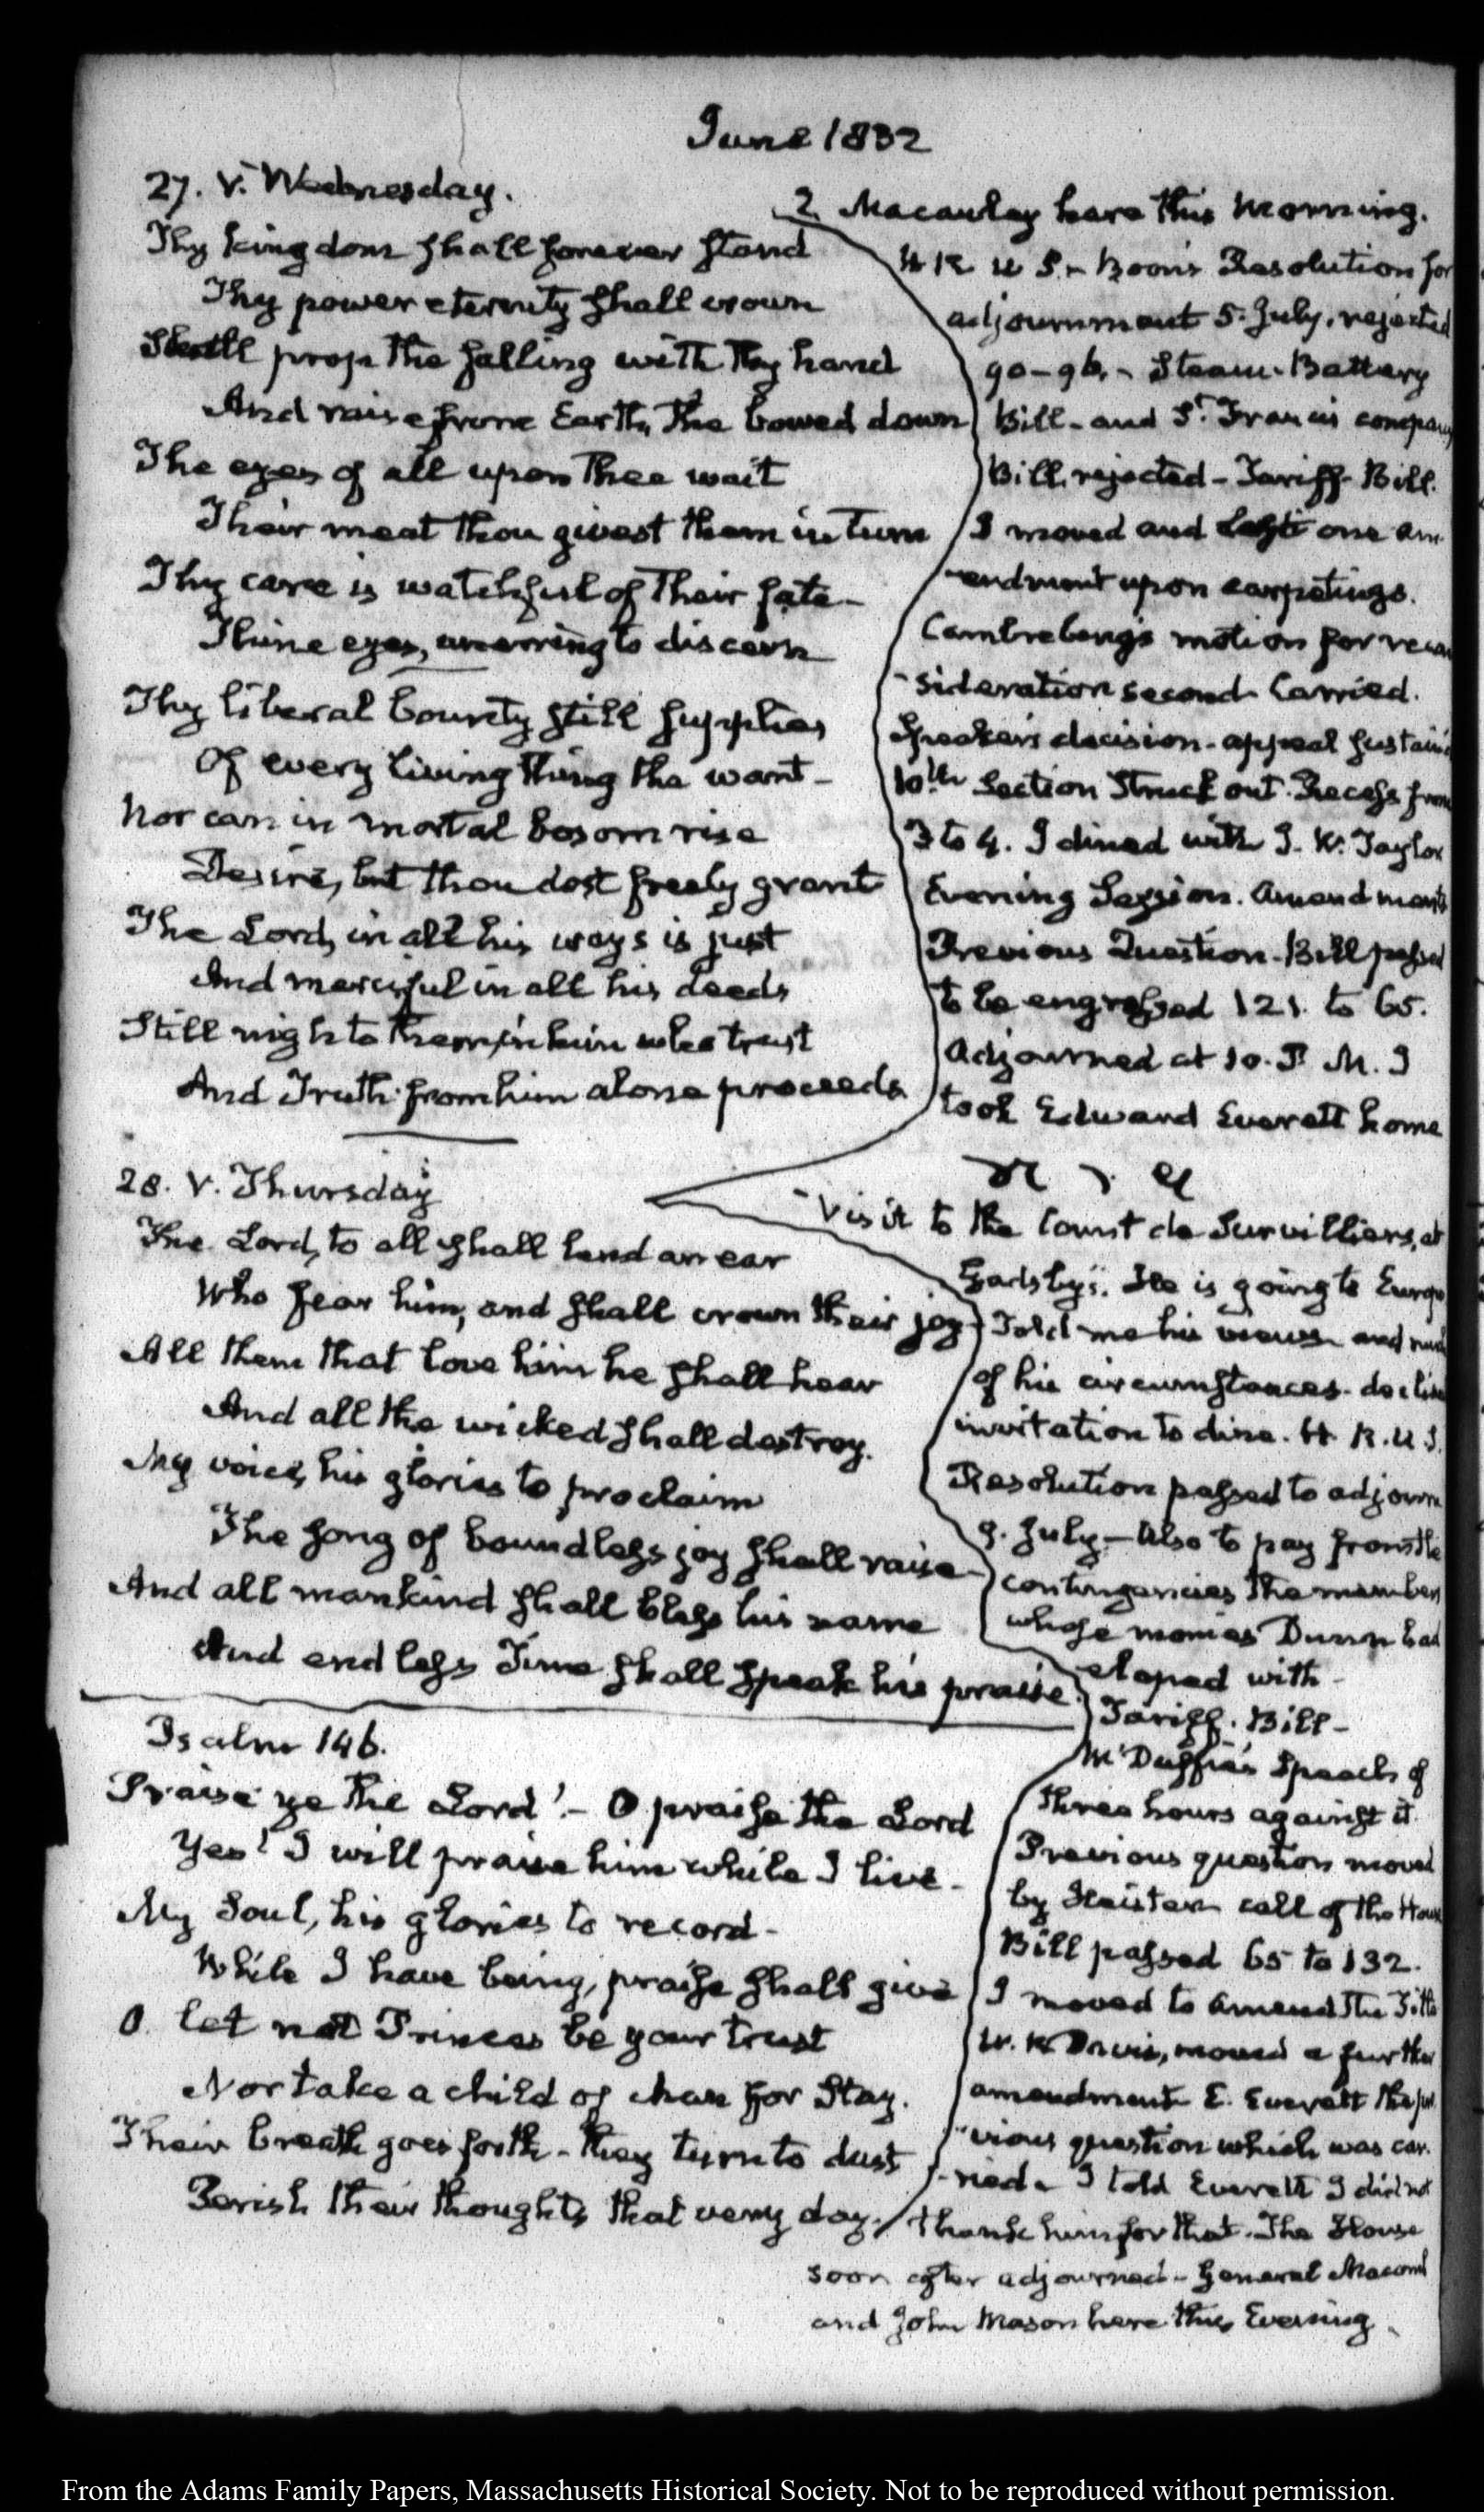 June 1832
27. V. Wednesday.
Thy kingdom shall forever stand
Thy power eternity shall crown
Shall prop the falling with thy hand
And raise from Earth, the bowed down
The eyes of all upon Thee wait
Their meat thou givest them in turn
Thy care is watchful of their fate-
Thine eyes, unerring to discern
Thy liberal bounty still supplies
Of every living thing the want-
Nor can in mortal bosom rise
Desire, but thou dost freely grant
The Lord, in all his ways is just
And merciful in all his deeds
Still nigh to them, in him who trust
And Truth from him alone proceeds
2. Macaulay here this morning.
H R U S.- Boon's Resolution for
adjournment 5. July. rejected
90-96.- Steam-Battery
Bill- and St. Francis company
Bill, rejected- Tariff-Bill.
I moved and lost one am
-endment upon carpetings.
Cambreleng's motion for recon
-sideration second carried.
Speaker's decision- appeal sustain'd
10th Section Struck out. Recess from
3 to 4. I dined with J. W. Taylor
Evening Session. Amendments
Previous Question- Bill passed
to be engrossed 121. to 65.
Adjourned at 10. P. M. I
took Edward Everett home
28. V. Thursday
The Lord, to all shall lend an ear
Who fear him, and shall crown their joy-
All them that love him he shall hear
And all the wicked shall destroy.
My voice, his glories to proclaim
The song of boundless joy shall raise-
And all mankind shall bless his name
And endless Time shall speak his praise.
Psalm 146.
Praise ye the Lord!- O praise the Lord
Yes! I will praise him while I live-
My Soul, his glories to record-
While I have being, praise shall give
O. let not Princes be your trust
Nor take a child of Man for Stay.
Their breath goes forth- they turn to dust
Perish their thoughts that very day.
Visit to the Count de Survilliers, at
Gadsby's. He is going to Europe
Told me his views and much
of his circumstances- decline
invitation to dine. H. R. U. S.
Resolution passed to adjourn
9. July- Also to pay from the
contingencies the members
whose monies Dunn had
eloped with-
Tariff. Bill-
McDuffie's Speech of
three hours against it
Previous question moved
by Heister call of the House
Bill passed 65 to 132.
I moved to amend the Title
W. R Davis, moved a further
amendment E. Everett the pre
-vious question which was car.
-ried- I told Everett I did not
thank him for that. The House
soon after adjourned- General Macomb
and John Mason here this Evening.
From the Adams Family Papers, Massachusetts Historical Society. Not to be reproduced without permission.